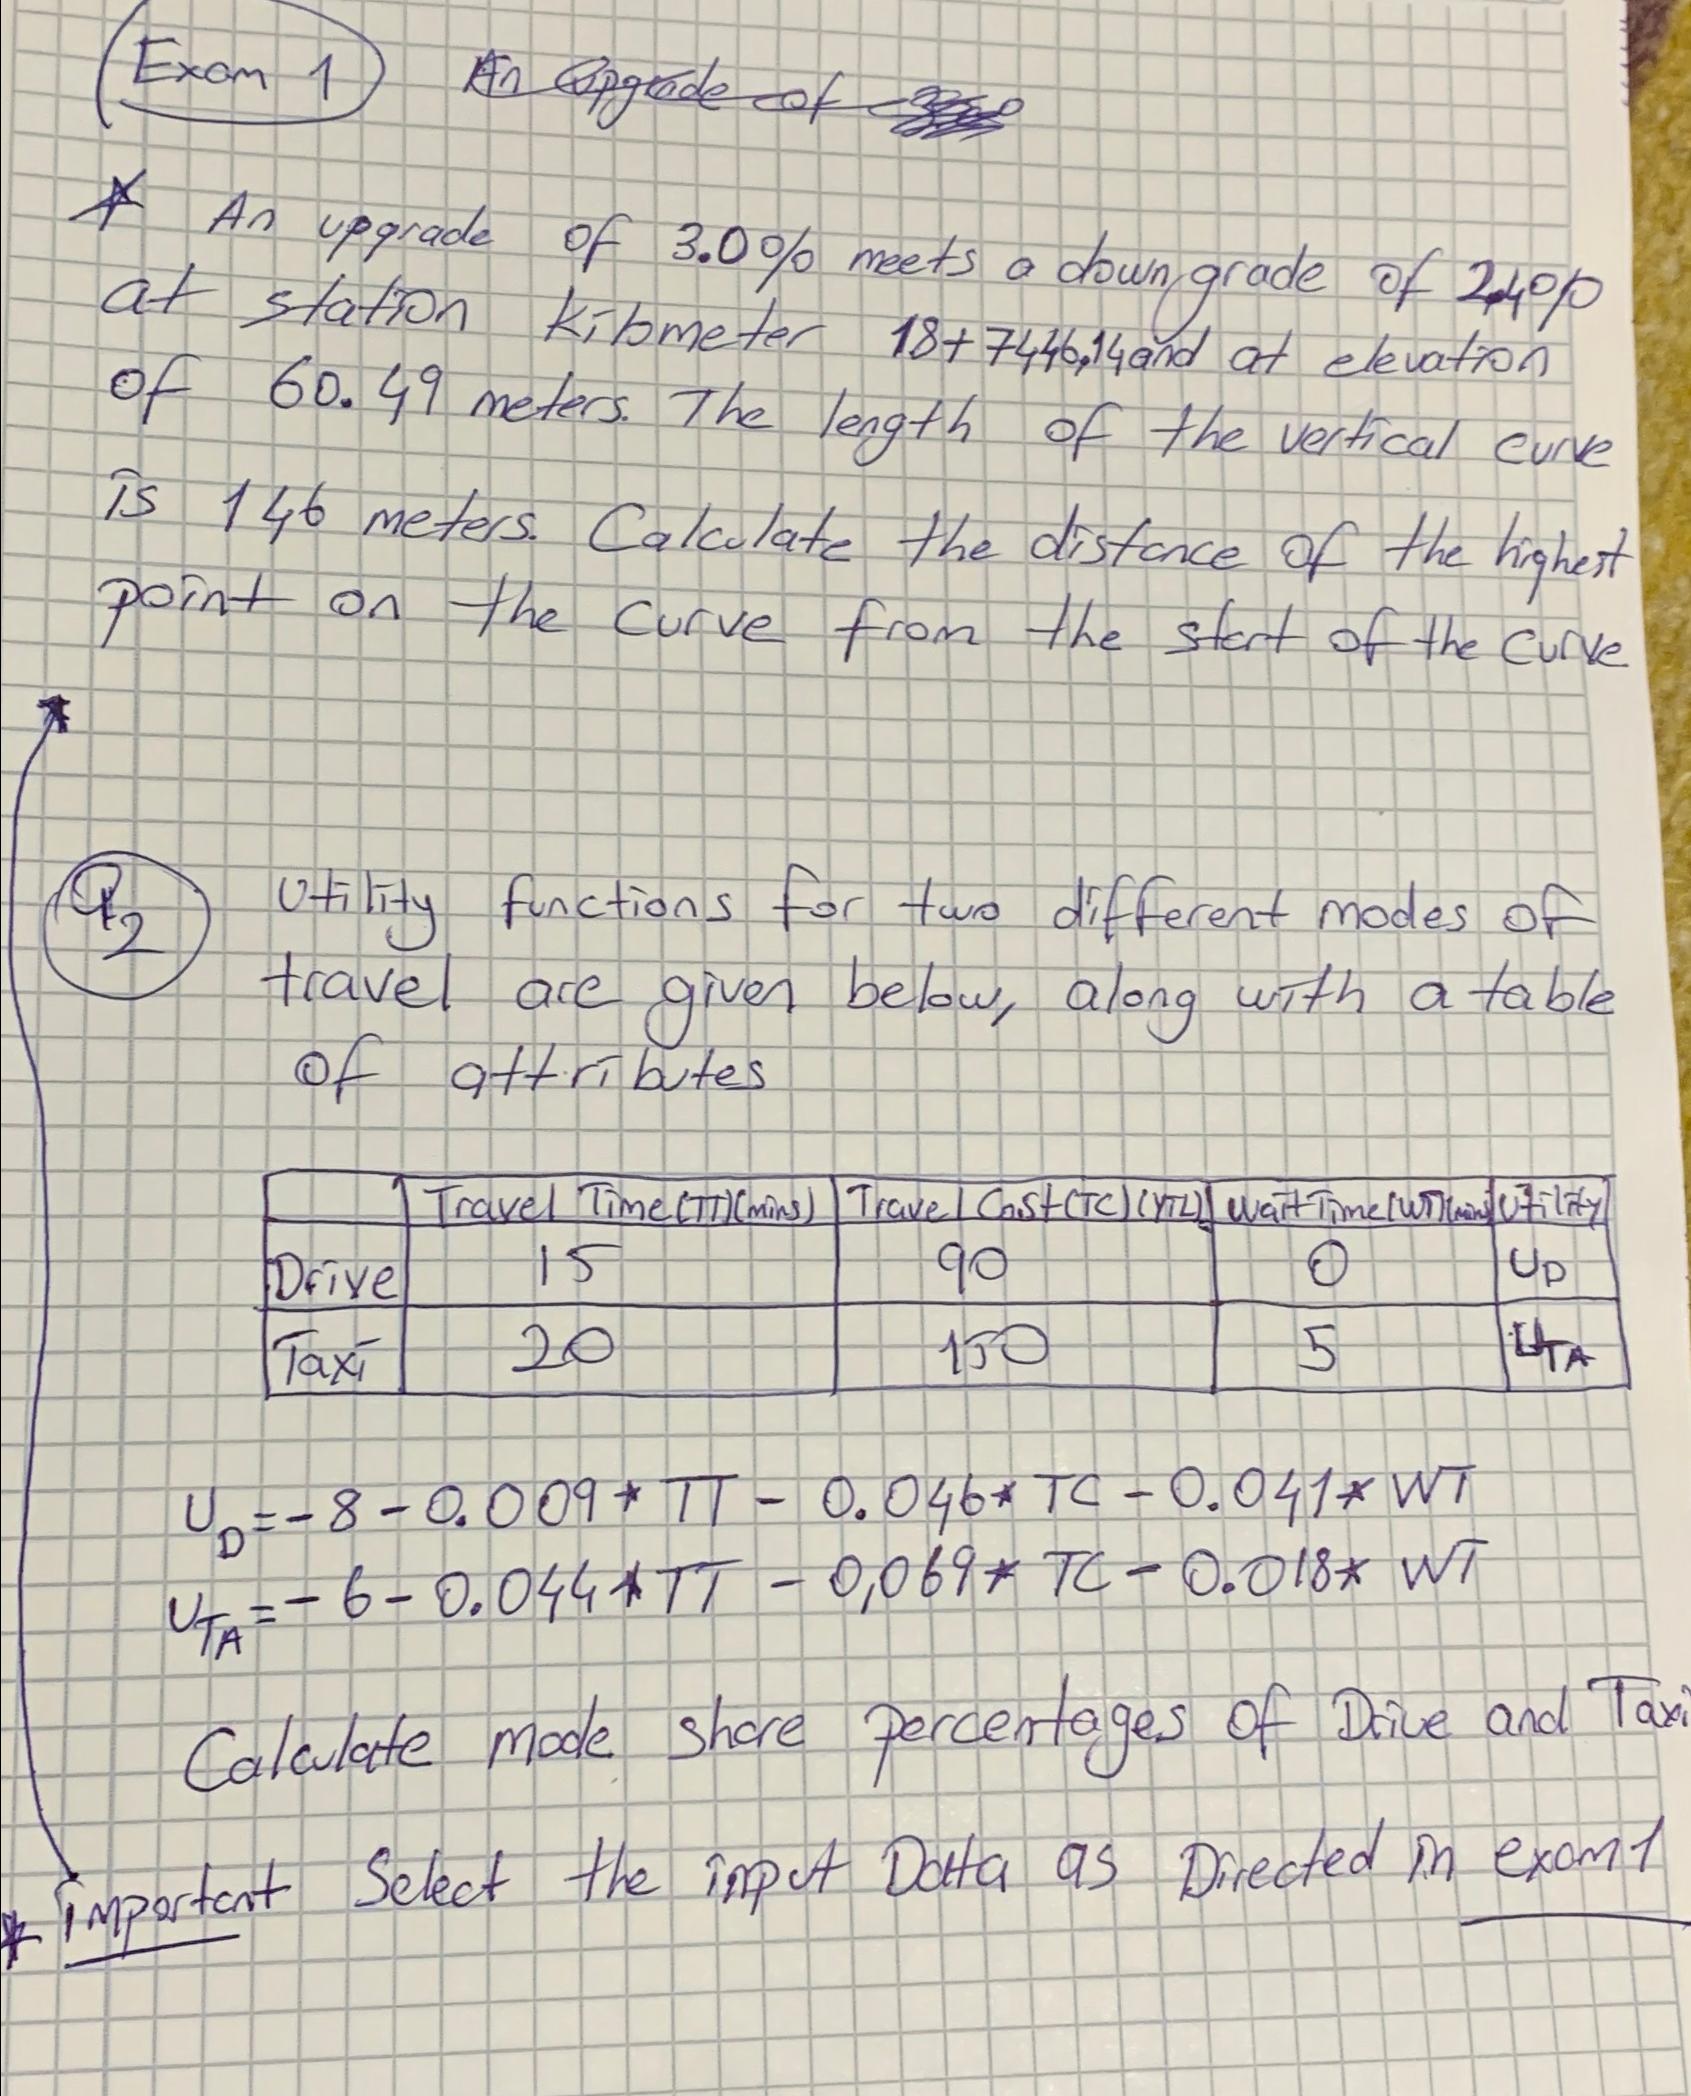 Exam 1
An Upgrade of
An upgrade of 3.0% meets a downgrade of 2,4%
at station kilometer 18+7446,14 and at elevation
of 60.49 meters. The length of the vertical curve
is 146 meters. Calculate the distance of the highest
point on the curve from the start of the curve
Q2 Utility functions for two different modes of
travel are given below, along with a table
of attributes
Travel Time(TT)(mins) Travel Cost(TC)(YTL) Wait Time(WT)(min) Utility
Drive 15 90 0 UD
Taxi 20 150 5 UTA
UD=-8-0.009*TT-0.046*TC-0.041*WT
UTA=-6-0.044*TT-0,069*TC-0.018*WT
Calculate mode share percentages of Drive and Taxi
* important Select the input Datta as Directed in exam1